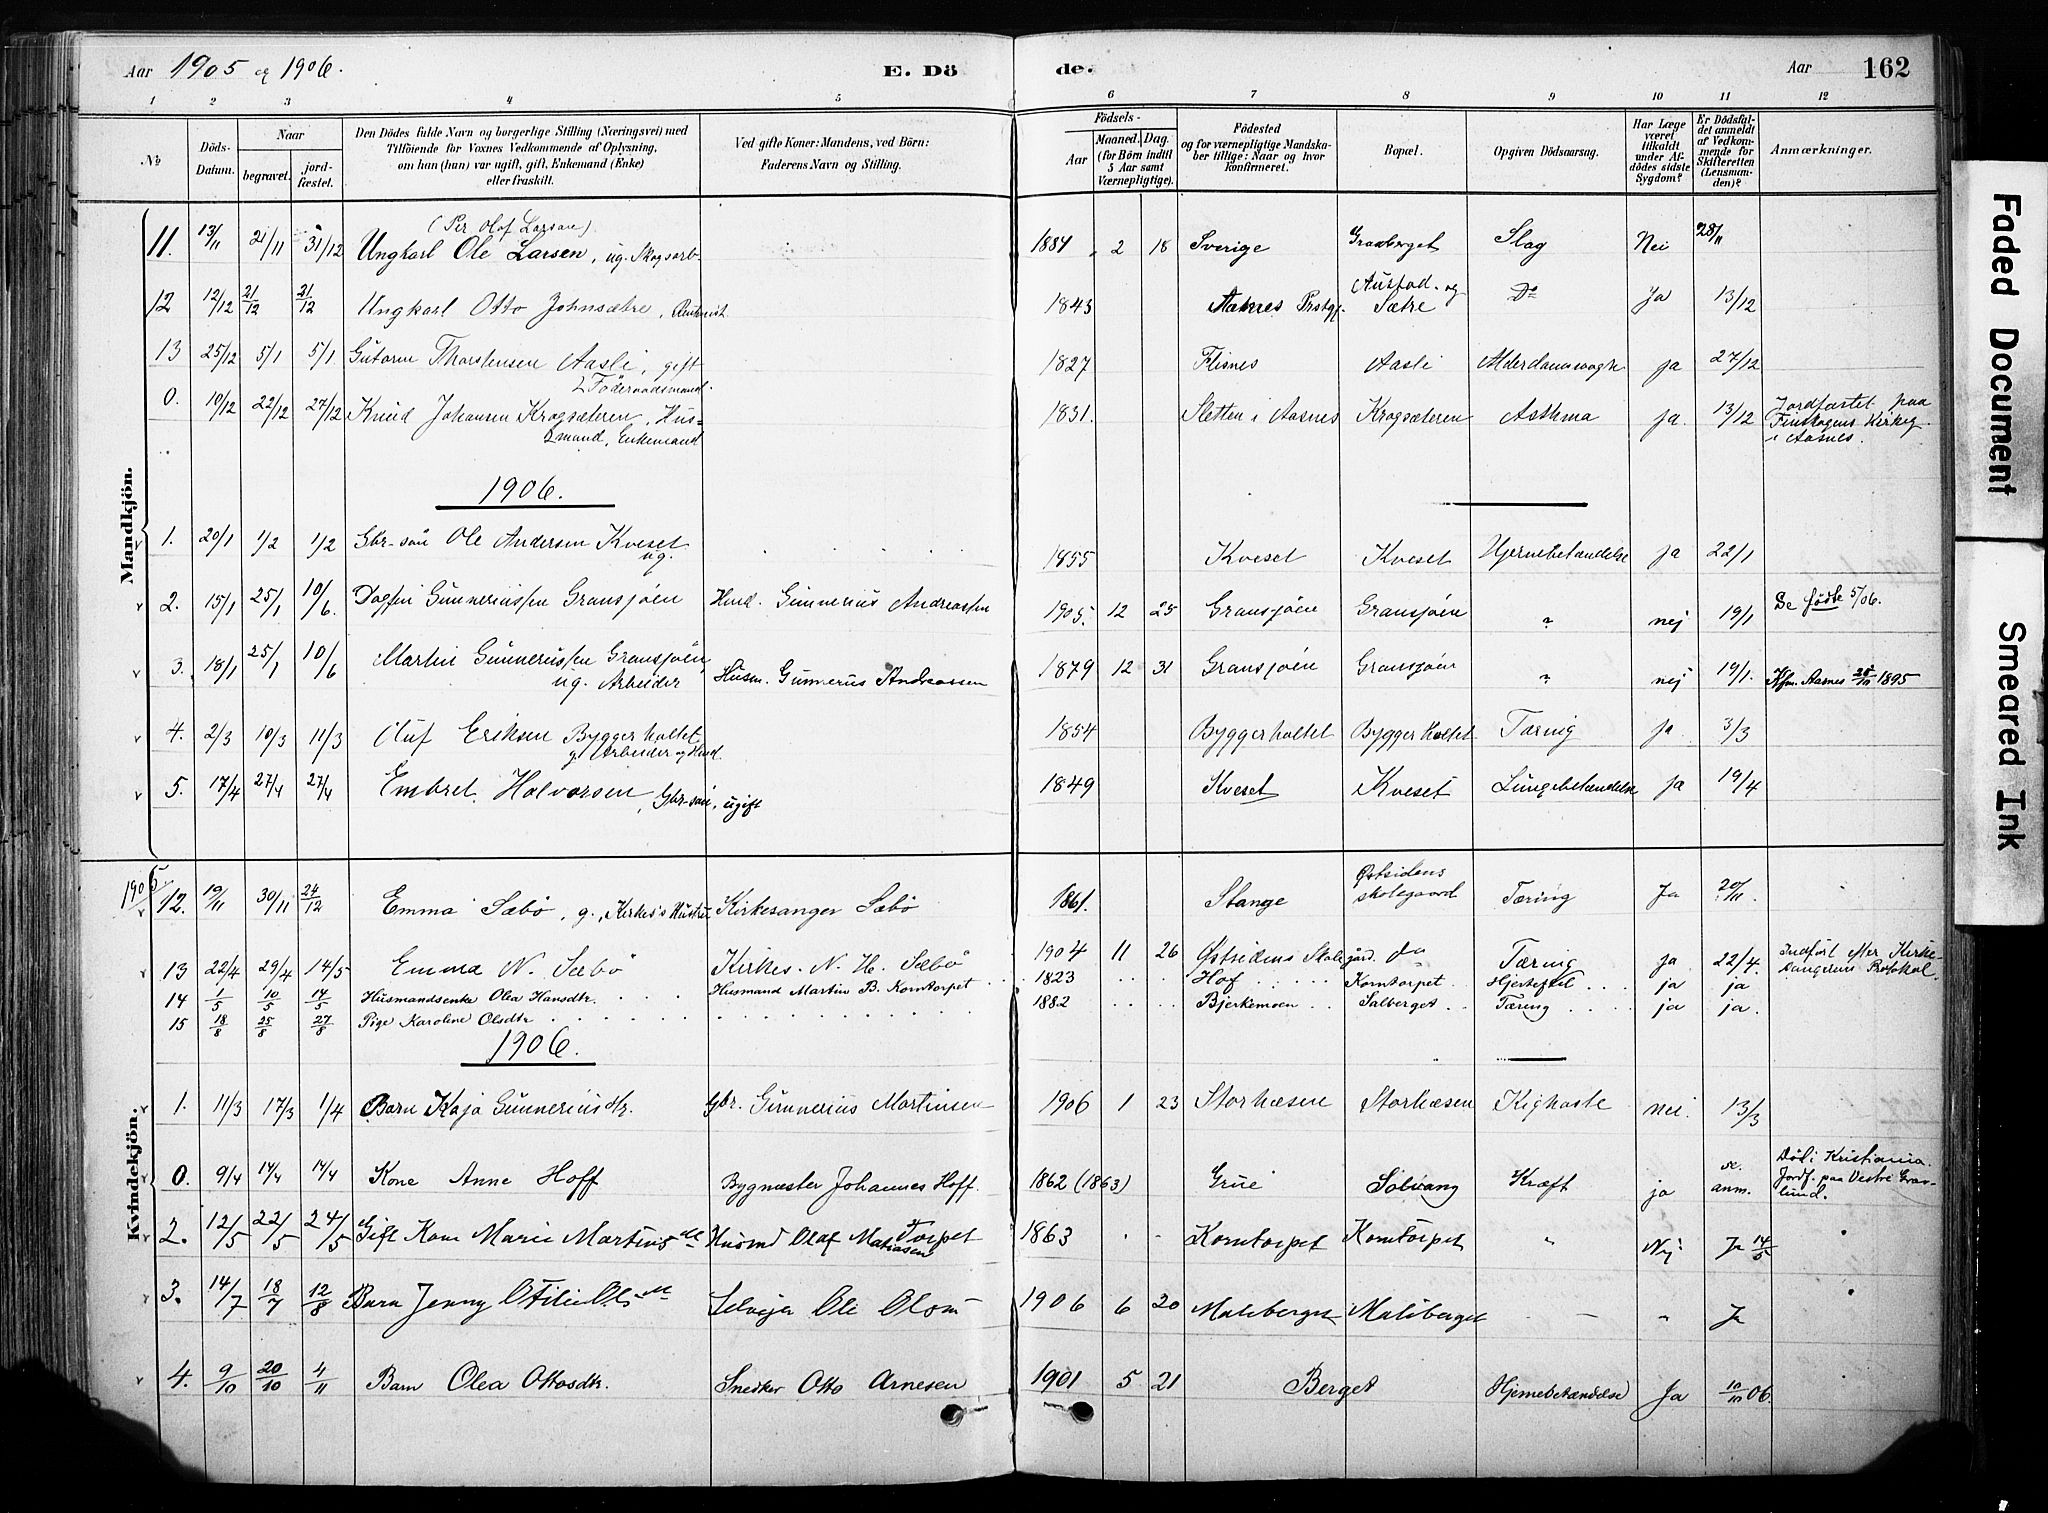 Aar 1905 og 1906. E. Döde. Aar 162
1 2 3 4 5 6 7 8 9 10 11 12
No Döds-Datum. Naar begravet. jordfæstet. Den Dödes fulde Navn og borgerlige Stilling (Næringsvei) med Tilföiende for Voxnes Vedkommende af Oplysning, om han (hun) var ugift, gift, Enkemand (Enke) eller fraskilt. Ved gifte Koner: Mandens, ved Börn: Faderens Navn og Stilling. Födsels- Aar Maaned. Dag. (for Börn indtil 5 Aar samt Værnepligtige). Födested og for værnepligtige Mandskaber tillige: Naar og hvor konfirmeret. Bopæl. Opgiven Dödsaarsag. Har Læge været tilkaldt under Afdödes sidste Sygdom? Er Dödsfaldet anmeldt af Vedkommende for Skifteretten (Lensmanden)? Anmærkninger.
Mandkjön.
(Per Olof Larsson)
11. 13/11 21/11 31/12 Ungkarl Ole Larsen, ug. Skogsarb. 1884 2 18 Sverige Graaberget Slag Nei 28/11
12 12/12 21/12 21/12 Ungkarl Otto Johnsæbre, 1843 Aasnes Prstgj. Sætre Do Ja 13/12
13 25/12 5/1 5/1 Gutorm Thorstensen Aasli, gift Föderaadsmand. 1827 Flisnes Aasli Alderdomssvagh. ja 27/12
0. 10/12 22/12 27/12 Knud Johansen Krogsæteren, Husmand, Enkemand 1831. Sletten i Aasnes Krogsæteren Asthma ja. 13/12 Jordfæstet paa Finskogens Kirkeg. i Aasnes.
1906.
1. 20/1 1/2 1/2 Gbr-søn Ole Andersen Kveset ug. 1855 Kveset Kveset Hjernebetændelse ja 22/1
2. 15/1 25/1 10/6. Dagfin Gunneriussen Gransjøen Husmd. Gunnerius Andreassen 1905. 12 25 Gransjøen Gransjøen " nej 19/1 Se fødte 5/06.
3. 18/1 25/1 10/6 Martin Gunneriussen Gransjøen, ug. Arbeider Husm. Gunnerus Andreassen 1879 12 31 Gransjøen Gransjøen " nej 19/1. Kfm. Aasnes 1895
4. 2/3 10/3 11/3 Oluf Eriksen Byggerholtet g. Arbeider og Husmd. 1854 Byggerholtet Byggerholtet Tæring ja 3/3
5. 17/4 27/4 27/4 Embret Halvorsen, Gbr-søn, ugift 1849 Kveset Kveset Lungebetændelse ja 19/4
Kvindekjön.
1905.
12. 19/11 30/11 24/12 Emma Sæbø, g., Kirkes's Hustru Kirkesanger Sæbø 1861. Stange Østsidens skolegaard Tæring Ja 20/11
13 22/4 29/4 14/5 Emma N. Sæbø Kirkes. N. H. Sæbø 1904 11 26 Østsidens Skolegård. do Tæring ja 22/4. Indført efter Kirkesangerens Protokol.
14 1/5 10/5 14/5 Husmandsenke Olea Hansdtr. Husmand Martin B. Korntorpet 1823 Hof Korntorpet Hjertefeil ja ja
15 18/8 25/8 27/8 Pige Karoline Olsdtr 1882 Bjerkemoen Salberget Tæring ja ja.
1906.
1. 11/3 17/3 1/4 Barn Kaja Gunneriusdtr. Gbr. Gunnerius Martinsen 1906 1 23 Storhæsen Storhæsen Kighoste nei 13/3
0. 9/4 14/4 14/4 Kone Anne Hoff Bygmester Johannes Hoff. 1862 (1863) Grue Solvang Kræft ja anm. Död i Kristiania. Jordf. paa Vestre Gravlund.
2. 12/5 22/5 24/5 Gift Kone Marie Martinsdtr Husmd Olaf Matiasen Torpet 1863 Korntorpet Korntorpet " Nej Ja 14/5
3. 14/7 18/7 12/8 Barn Jenny Otilie Olsdtr Selveier Ole Olsen 1906 6 20 Maliberget Maliberget - " Ja
4. 9/10 20/10 4/11 Barn Olea Ottosdtr. Snedker Otto Arnesen 1901 5 21 Berget Hjernebetændelse Ja 10/10 06.
Faded Document
Smeared Ink